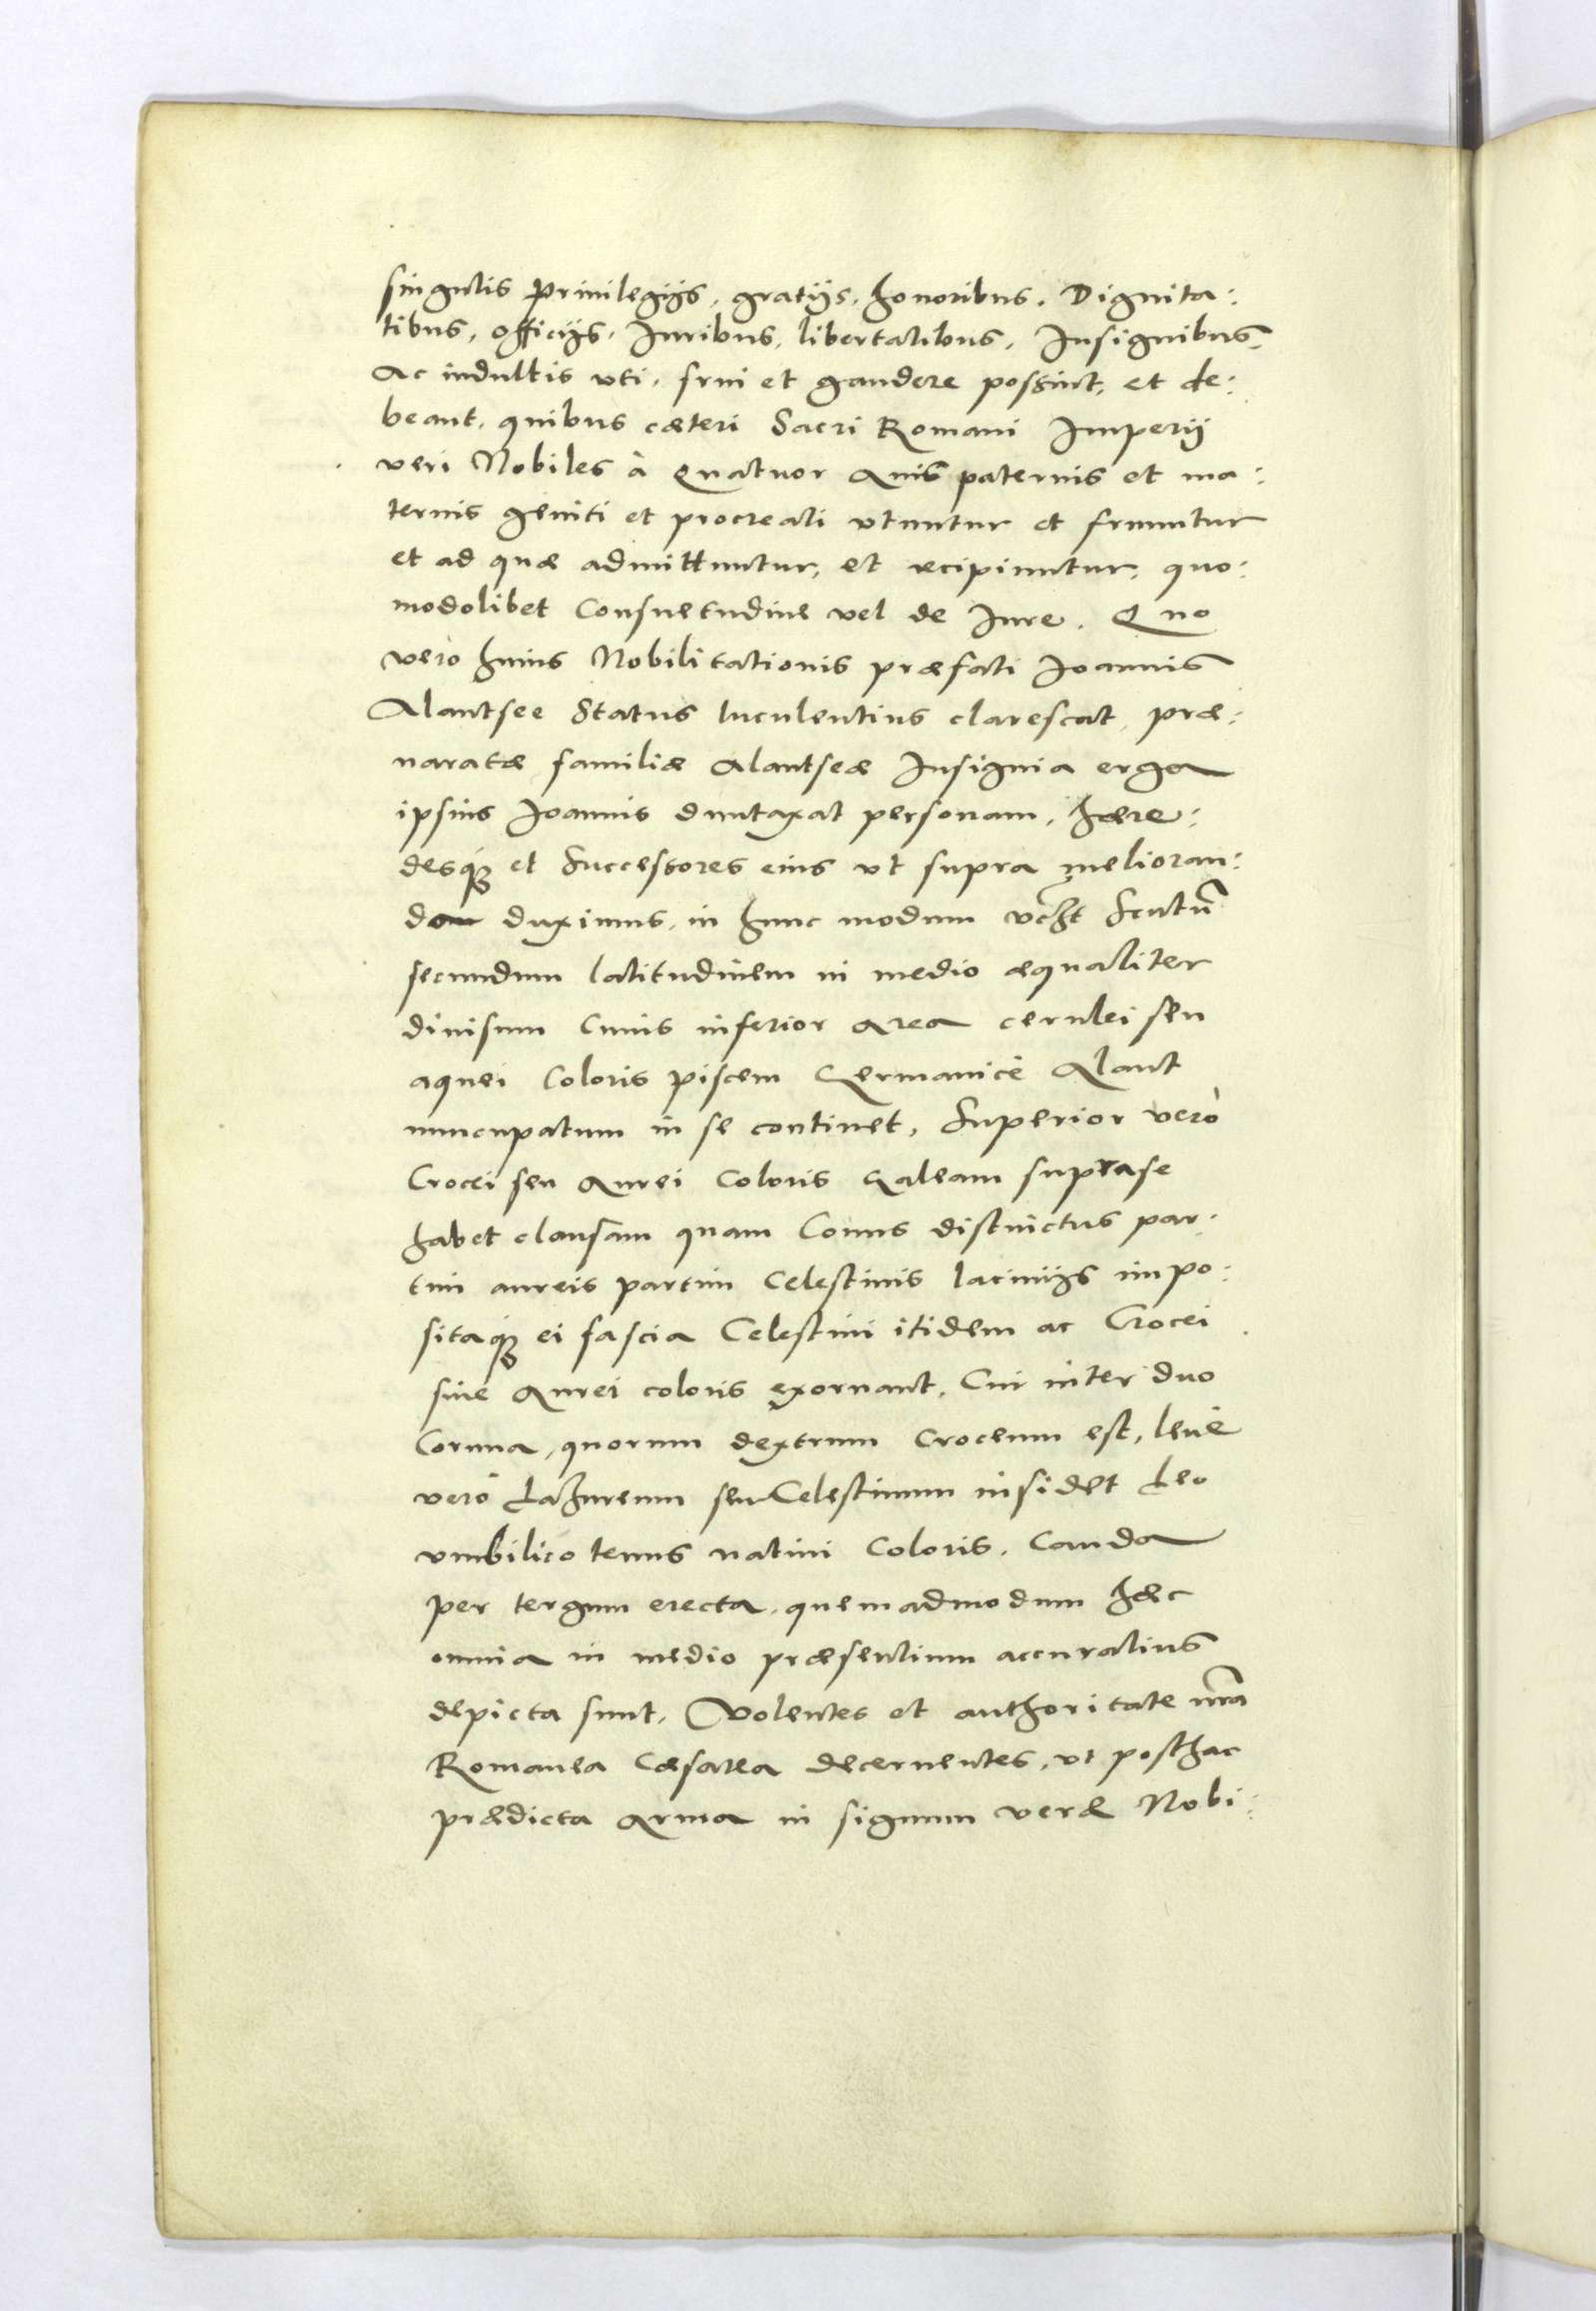 singulis Priuilegijs, gratijs, honoribus, Dignita:
tibus, officijs, Iuribus, libertatibus, Insignibus,
Ac indultis vti, frui et gaudere possint, et de:
beant, quibus cæteri Sacri Romani Imperij
veri Nobiles à Quatuor Auis paternis et ma:
ternis geniti et procreati vtuntur et fruuntur
et ad quæ admittuntur, et recipiuntur, quo:
modolibet Consuetudine vel de Iure. Quo
vero huius Nobilitationis præfati Ioannis
Alantsee Status luculentius clarescat, præ:
naratæ familiæ Alantseæ Insignia erga
ipsius Ioannis duntaxat personam, hære:
desq́ue et Successores eius vt supra melioran:
da duximus, in hunc modum vczt Scutũ
secundum latitudinem in medio æqualiter
diuisum Cuius inferior Area cerulei seu
aquei Coloris piscem Germanicè Alant
nuncupatum in se continet, Superior verò
Crocei seu Aurei Coloris Galeam supra se
habet clausam quam Conus distinctus par:
tim aureis partim Celestinis lacinijs impo:
sitaq́ue ei fascia Celestini itidem ac Crocei
siue Aurei coloris exornant, Cui inter duo
Cornua, quorum dextrum Croceum est, leuè
verò Lazureum seu Celestinum insidet Leo
vmbilico tenus natiui Coloris, Cauda
per tergum erecta, quemadmodum hæc
omnia in medio præsentium accuratius
depicta sunt, Volentes et authoritate nr̃a
Romanea Cæsarea decernentes, vt posthac
prædicta Arma in signum veræ Nobi: